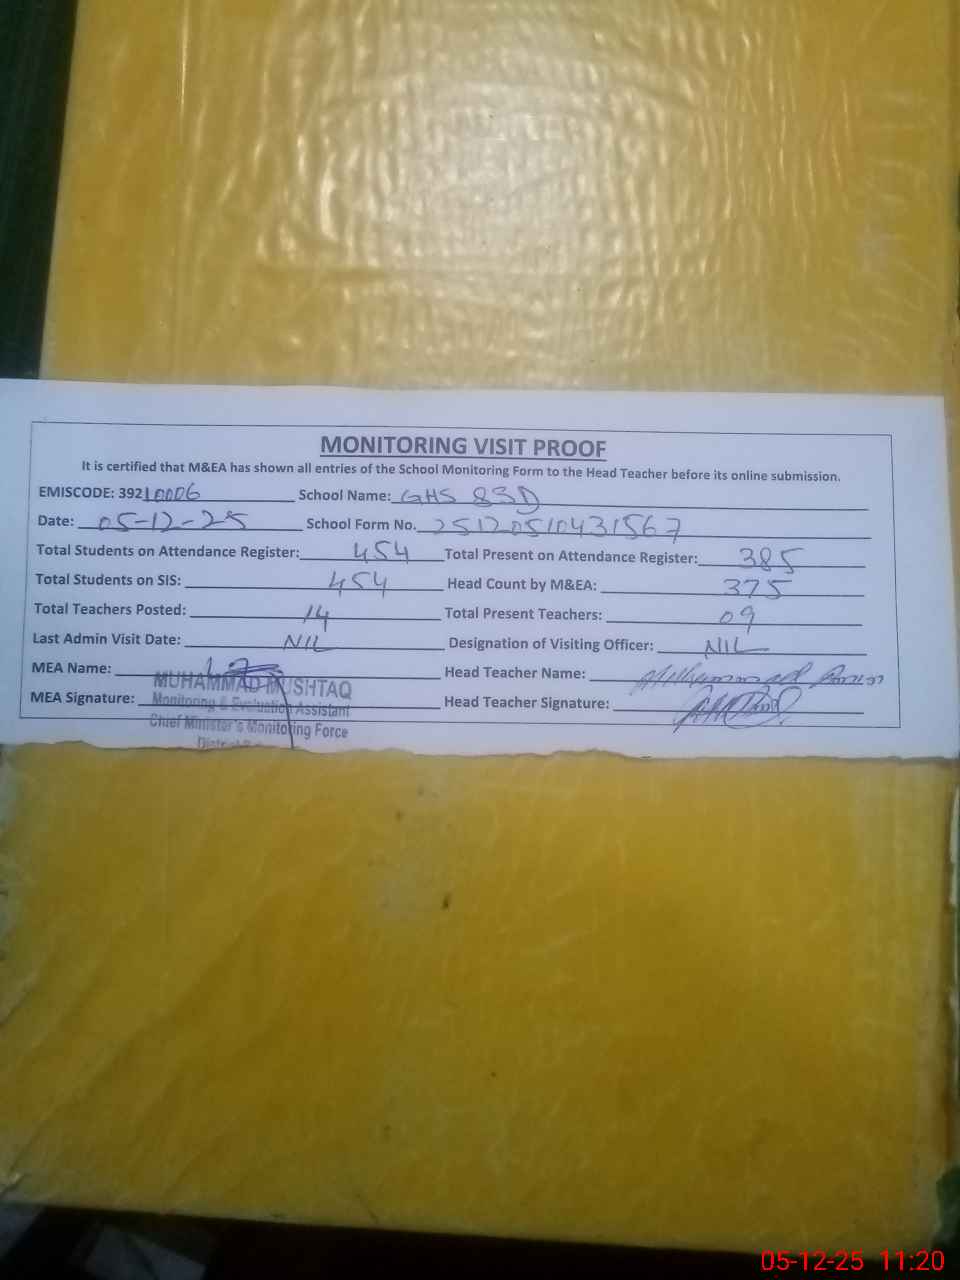 MONITORING VISIT PROOF
It is certified that M&EA has shown all entries of the School Monitoring Form to the Head Teacher before its online submission.
EMISCODE: 39210006 School Name: GHS 83D
Date: 05-12-25 School Form No. 25120510431567
Total Students on Attendance Register: 454 Total Present on Attendance Register: 385
Total Students on SIS: 454 Head Count by M&EA: 375
Total Teachers Posted: 14 Total Present Teachers: 09
Last Admin Visit Date: NIL Designation of Visiting Officer: NIL
MEA Name: Head Teacher Name: Muhammad
MUHAMMAD MUSHTAQ
MEA Signature: Head Teacher Signature:
Monitoring & Evaluation Assistant
Chief Minister's Monitoring Force
District
05-12-25 11:20